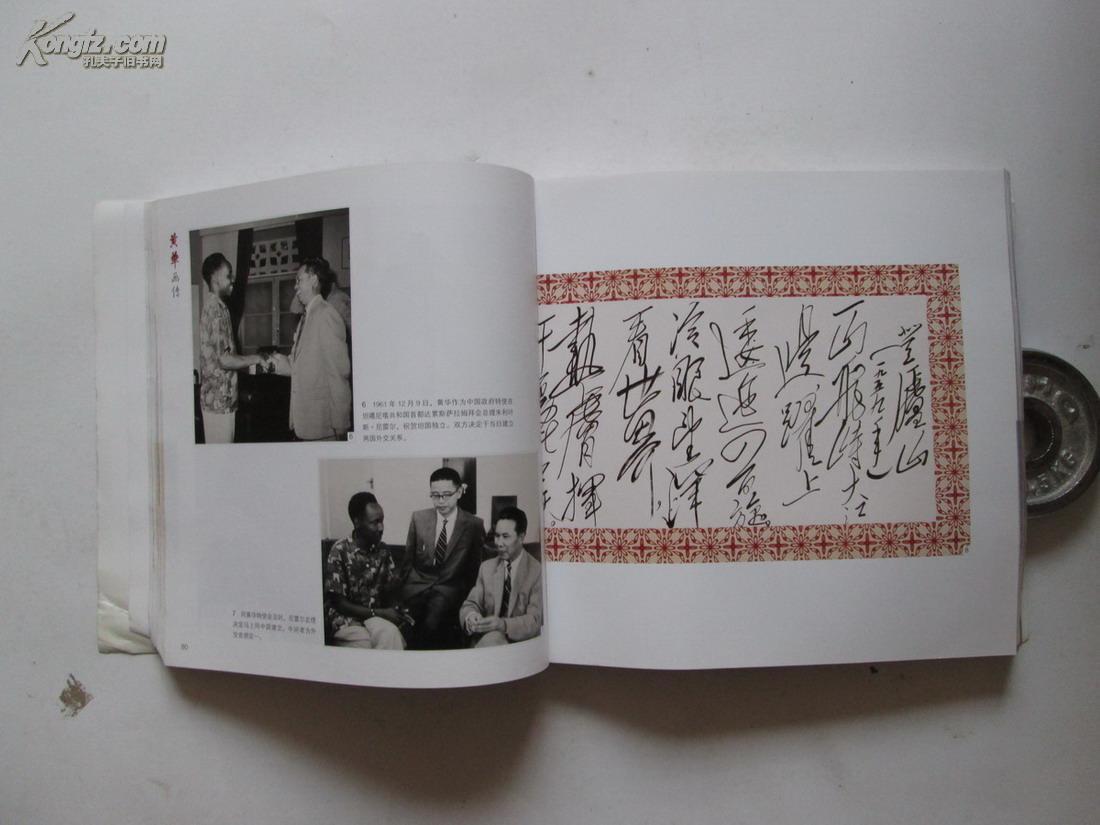 Kongfz.com
孔夫子旧书网
黄华画传
6 1961年12月9日，黄华作为中国政府特使在
坦噶尼喀共和国首都达累斯萨拉姆拜会总理朱利叶
斯·尼雷尔，祝贺坦国独立。双方决定于当日建立
两国外交关系。
6
7 同黄华特使会见时，尼雷尔总理
决定马上同中国建交。中间者为外
交官唐定一。
80
登庐山
（一九五九年）
一山飞峙大江
边跃上
葱茏四百旋
冷眼望洋
看世界
热肤挥
8
5KG